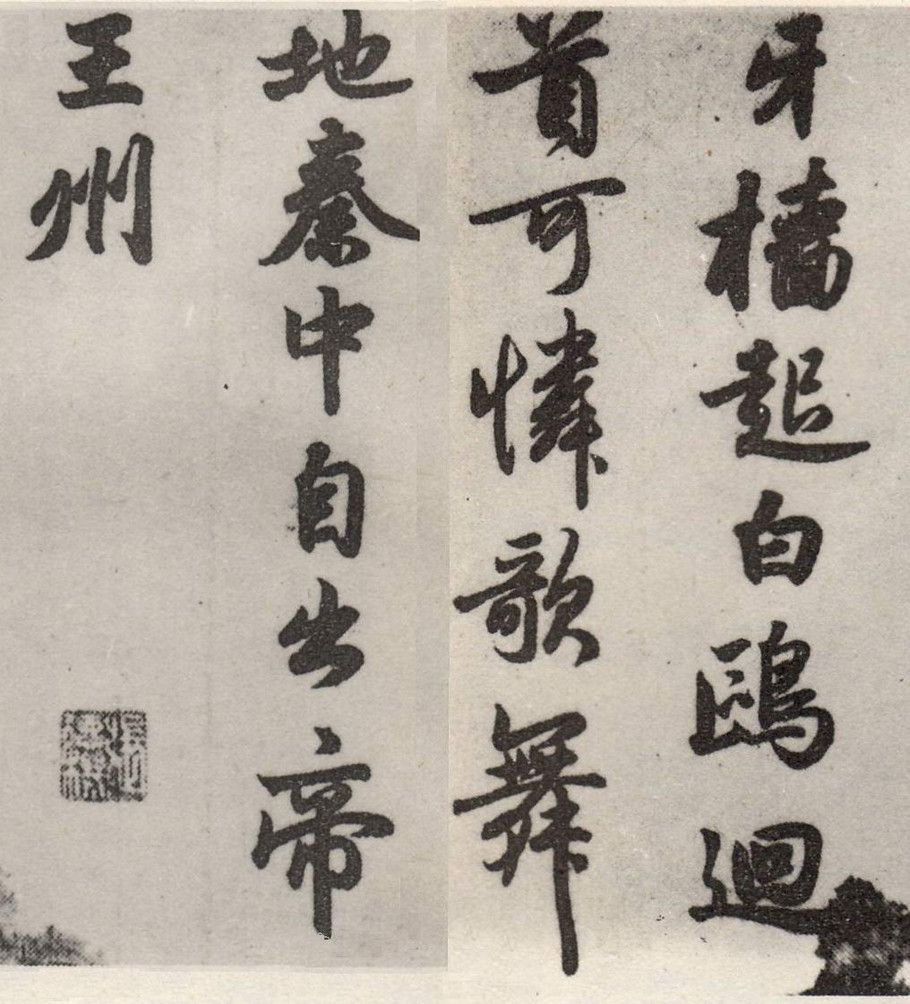 牙檣起白鷗迴
首可憐歌舞
地秦中自出帝
王州